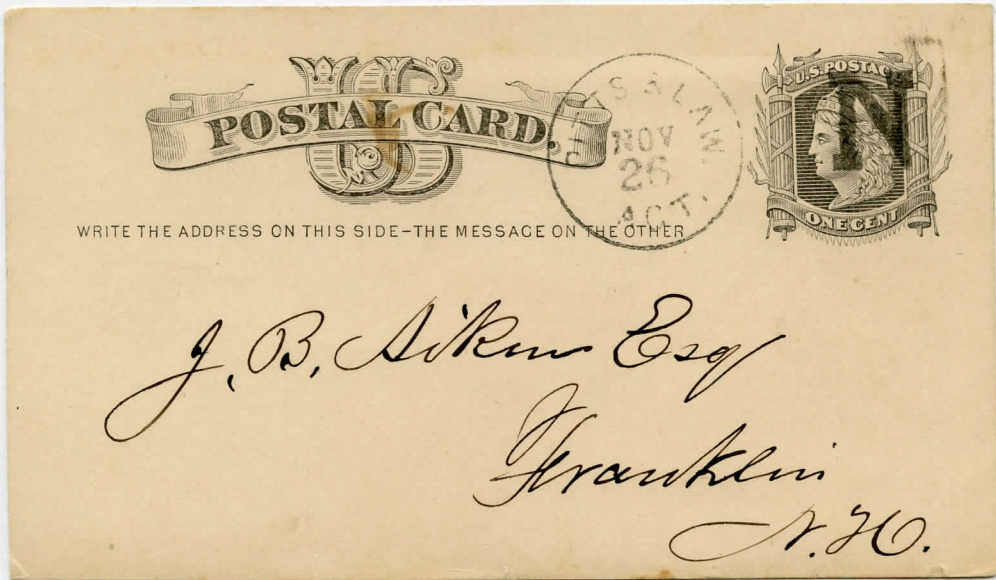 POSTAL CARD.
U.S. POSTAGE
ONE CENT
& LAW.
NOV
26
AGT.
N
WRITE THE ADDRESS ON THIS SIDE–THE MESSAGE ON THE OTHER
J. B. Aiken Esq
Franklin
N. H.